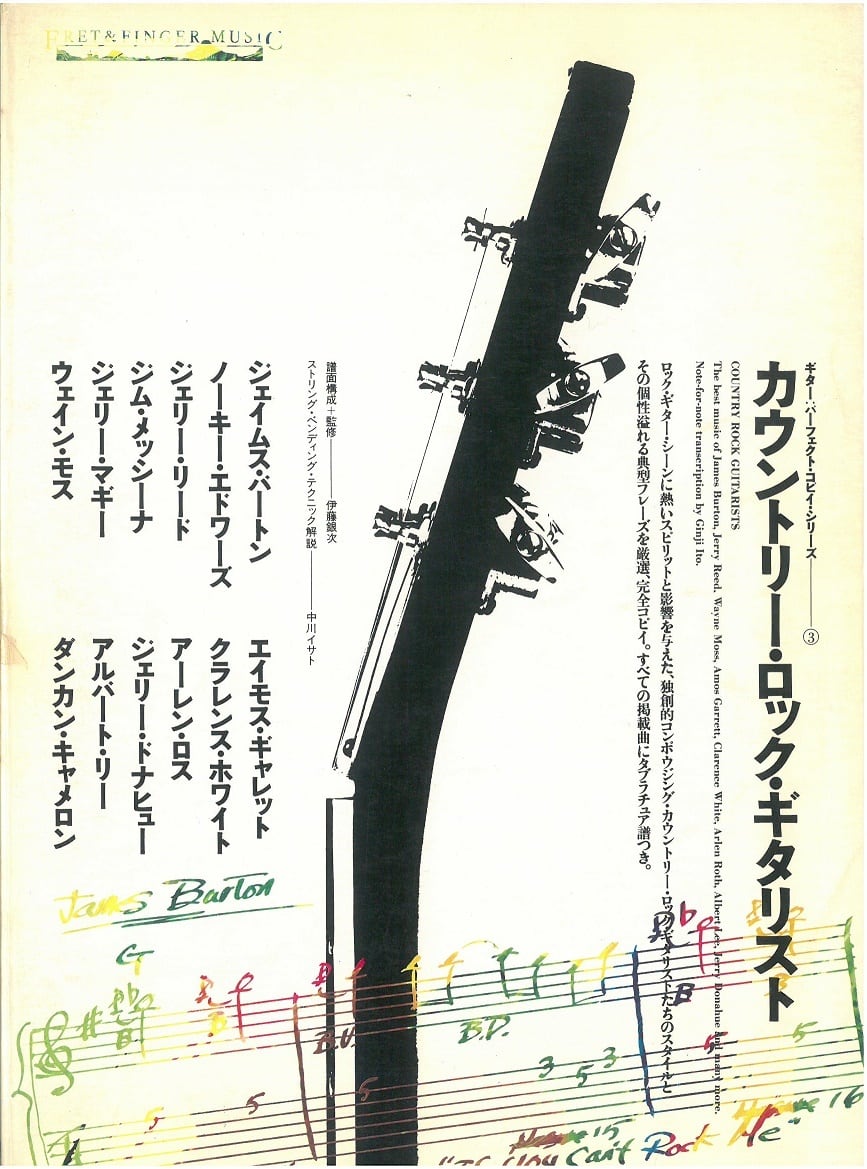 FRET & FINGER MUSIC
ギター・パーフェクト・コピイ・シリーズ──③
カウントリー・ロック・ギタリスト
COUNTRY ROCK GUITARISTS
The best music of James Burton, Jerry Reed, Wayne Moss, Amos Garrett, Clarence White, Arlen Roth, Albert Lee, Jerry Donahue and many more.
Note-for-note transcription by Ginji Ito.
ロック・ギター・シーンに熱いスピリットと影響を与えた、独創的コンポウジング・カウントリー・ロック・ギタリストたちのスタイルと
その個性溢れる典型フレーズを厳選、完全コピイ。すべての掲載曲にタブラチュア譜つき。
譜面構成+監修──伊藤銀次
ストリング・ベンディング・テクニック解説──中川イサト
ジェイムス・バートン
ノーキー・エドワーズ
ジェリー・リード
ジム・メッシーナ
ジェリー・マギー
ウェイン・モス
エイモス・ギャレット
クラレンス・ホワイト
アーレン・ロス
ジェリー・ドナヒュー
アルバート・リー
ダンカン・キャメロン
James Burton
G
B
B
B
B.U.
B.D.
3
5
3
5
5
5
5
5
16
15
Can't Rock Me"